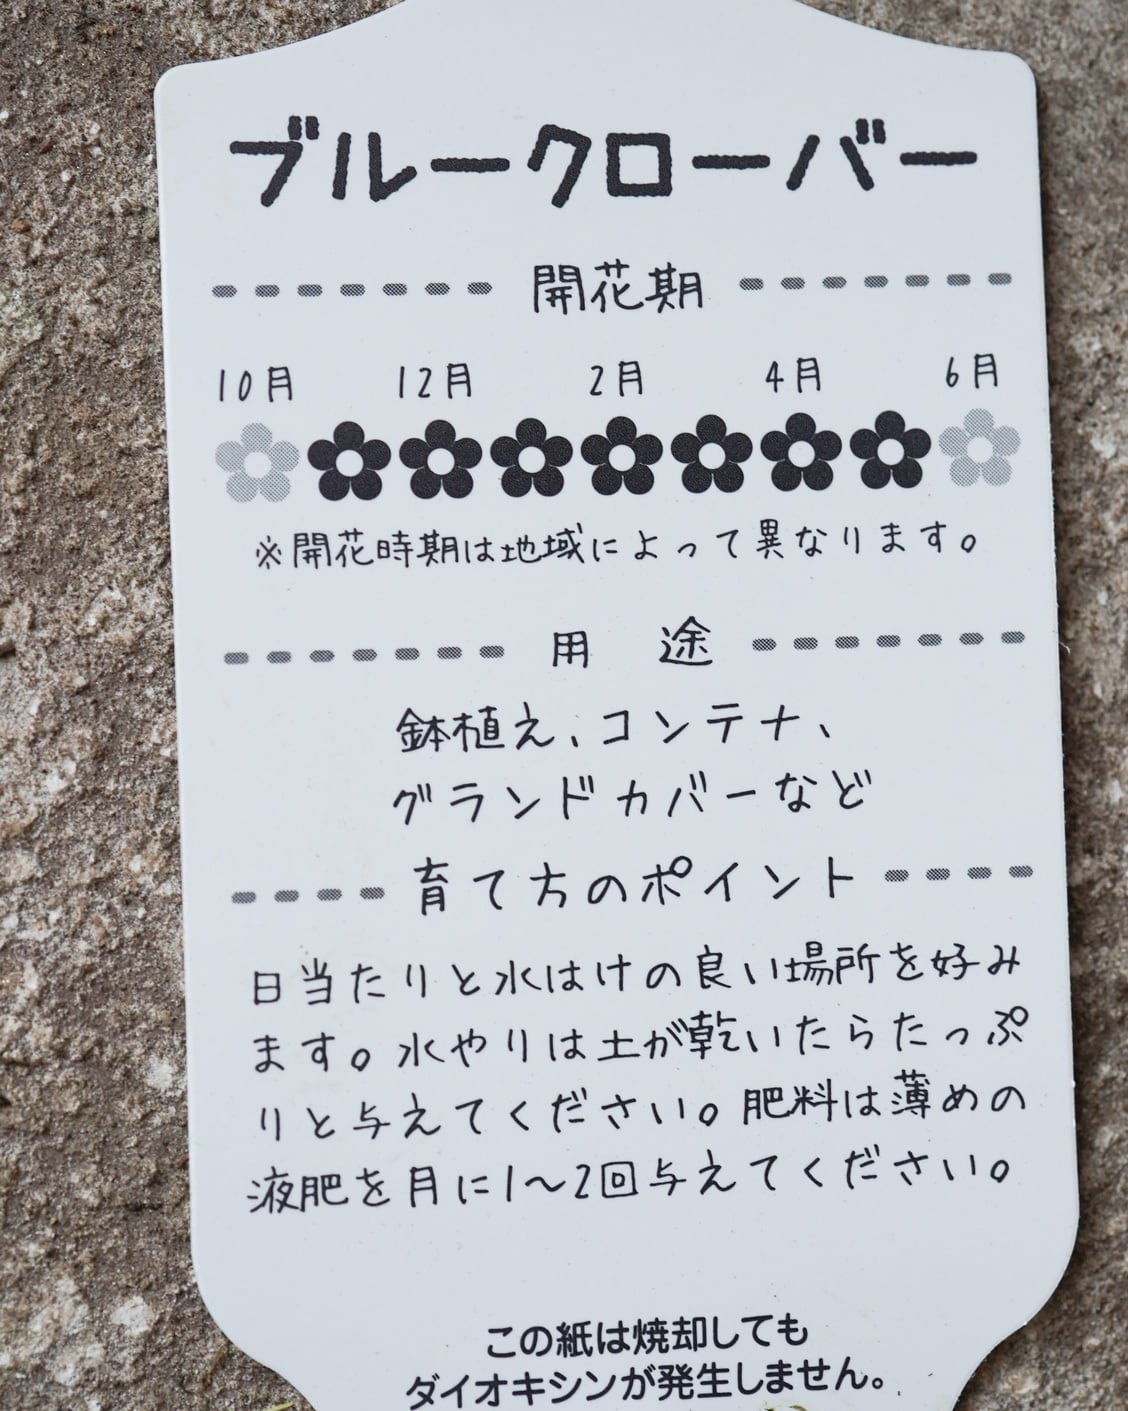 ブルークローバー
開花期
10月 12月 2月 4月 6月
※開花時期は地域によって異なります。
用 途
鉢植え、コンテナ、
グランドカバーなど
育て方のポイント
日当たりと水はけの良い場所を好み
ます。水やりは土が乾いたらたっぷ
りと与えてください。肥料は薄めの
液肥を月に1～2回与えてください。
この紙は焼却しても
ダイオキシンが発生しません。